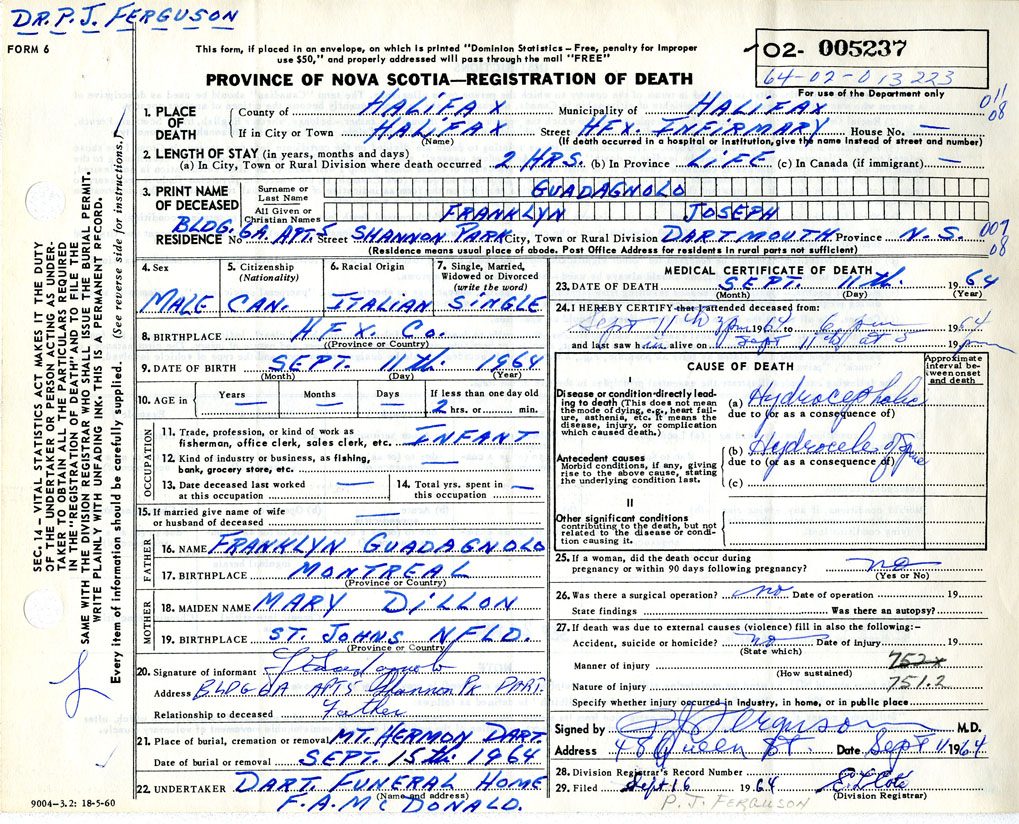 DR. P. J. FERGUSON
FORM 6
This form, if placed in an envelope, on which is printed "Dominion Statistics – Free, penalty for improper
use $50," and properly addressed will pass through the mail "FREE"
O2- 005237
64-02-013223
For use of the Department only
PROVINCE OF NOVA SCOTIA—REGISTRATION OF DEATH
011
08
1. PLACE OF DEATH
County of HALIFAX Municipality of HALIFAX
If in City or Town HALIFAX Street HFX. INFIRMARY House No. —
(Name) (If death occurred in a hospital or institution, give the name instead of street and number)
2. LENGTH OF STAY (in years, months and days)
(a) In City, Town or Rural Division where death occurred 2 HRS. (b) In Province LIFE (c) In Canada (if immigrant) —
3. PRINT NAME OF DECEASED
Surname or Last Name GUADAGNOLO
All Given or Christian Names FRANKLYN JOSEPH
RESIDENCE No BLDG. 6A APT. 5 Street SHANNON PARK City, Town or Rural Division DARTMOUTH Province N.S.
007
08
(Residence means usual place of abode. Post Office Address for residents in rural parts not sufficient)
4. Sex MALE
5. Citizenship (Nationality) CAN.
6. Racial Origin ITALIAN
7. Single, Married, Widowed or Divorced (write the word) SINGLE
8. BIRTHPLACE HFX. CO.
(Province or Country)
9. DATE OF BIRTH SEPT. 11th 1964
(Month) (Day) (Year)
10. AGE in Years — Months — Days — If less than one day old 2 hrs. or min.
OCCUPATION
11. Trade, profession, or kind of work as fisherman, office clerk, sales clerk, etc. INFANT
12. Kind of industry or business, as fishing, bank, grocery store, etc. —
13. Date deceased last worked at this occupation —
14. Total yrs. spent in this occupation —
15. If married give name of wife or husband of deceased —
FATHER
16. NAME FRANKLYN GUADAGNOLO
17. BIRTHPLACE MONTREAL
(Province or Country)
MOTHER
18. MAIDEN NAME MARY DILLON
19. BIRTHPLACE ST. JOHNS NFLD.
(Province or Country)
20. Signature of informant
Address BLDG 6A APT 5 Shannon Pk DART.
Relationship to deceased Father
21. Place of burial, cremation or removal MT. HERMON DART.
Date of burial or removal SEPT. 15th 1964
22. UNDERTAKER DART. FUNERAL HOME
(Name and address)
F. A. MC DONALD.
9004-3.2: 18-5-60
SEC. 14 – VITAL STATISTICS ACT MAKES IT THE DUTY
OF THE UNDERTAKER OR PERSON ACTING AS UNDER-
TAKER TO OBTAIN ALL THE PARTICULARS REQUIRED
IN THE "REGISTRATION OF DEATH" AND TO FILE THE
SAME WITH THE DIVISION REGISTRAR WHO SHALL ISSUE THE BURIAL PERMIT.
WRITE PLAINLY WITH UNFADING INK. THIS IS A PERMANENT RECORD.
Every item of information should be carefully supplied. (See reverse side for instructions.)
MEDICAL CERTIFICATE OF DEATH
23. DATE OF DEATH SEPT. 11th. 1964
(Month) (Day) (Year)
24. I HEREBY CERTIFY that I attended deceased from:
Sept 11th 3 pm 1964 to 6 pm 1964
and last saw him alive on Sept 11th at 5 19 pm
CAUSE OF DEATH
Approximate interval between onset and death
I
Disease or condition directly leading to death (This does not mean the mode of dying, e.g., heart failure, asthenia, etc. It means the disease, injury, or complication which caused death.)
(a) Hydrocephalic
due to (or as a consequence of)
Antecedent causes
Morbid conditions, if any, giving rise to the above cause, stating the underlying condition last.
(b) Hydrocele of Spine
due to (or as a consequence of)
(c)
II
Other significant conditions contributing to the death, but not related to the disease or condition causing it.
25. If a woman, did the death occur during
pregnancy or within 90 days following pregnancy? no
(Yes or No)
26. Was there a surgical operation? no Date of operation 19
State findings Was there an autopsy?
27. If death was due to external causes (violence) fill in also the following:–
Accident, suicide or homicide? no Date of Injury 19
(State which)
Manner of injury 752x
(How sustained)
Nature of injury 751.2
Specify whether injury occurred in industry, in home, or in public place
Signed by P J Ferguson M.D.
Address 48 Queen St. Date Sept 11 1964
28. Division Registrar's Record Number
29. Filed Sept 16 1964
(Division Registrar)
P. J. FERGUSON